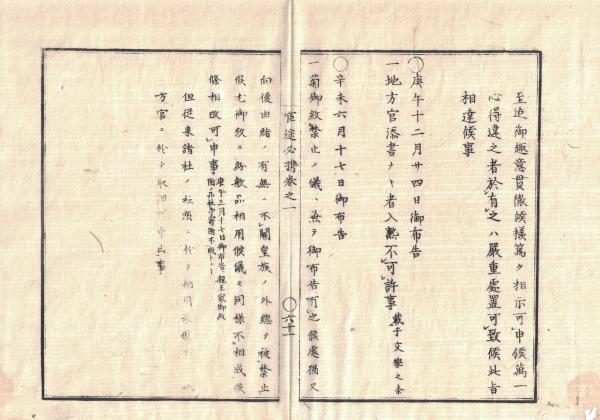 至迄御趣意貫徹候様篤ク相示可申候萬一
心得違之者於有之ハ嚴重處置可致候此旨
相達候事
〇庚午十二月廿四日御布告
一地方官添書ナキ者入熟不可許事 載于文學之条
〇辛未六月十七日御布告
一菊御紋禁止ノ儀ハ兼テ御布告有之候處猶又
官途必携巻之一
〇六十一
向後由緒ノ有無ニ不関皇族ノ外總テ被禁止
候尤御紋ニ紛敷品相用候儀モ同様不相成候
條相改可申事 庚午三月十七日御布告親王家御殿
但従来諸社ノ社頭ニ於テ相用
方官ニ於テ取 申出事